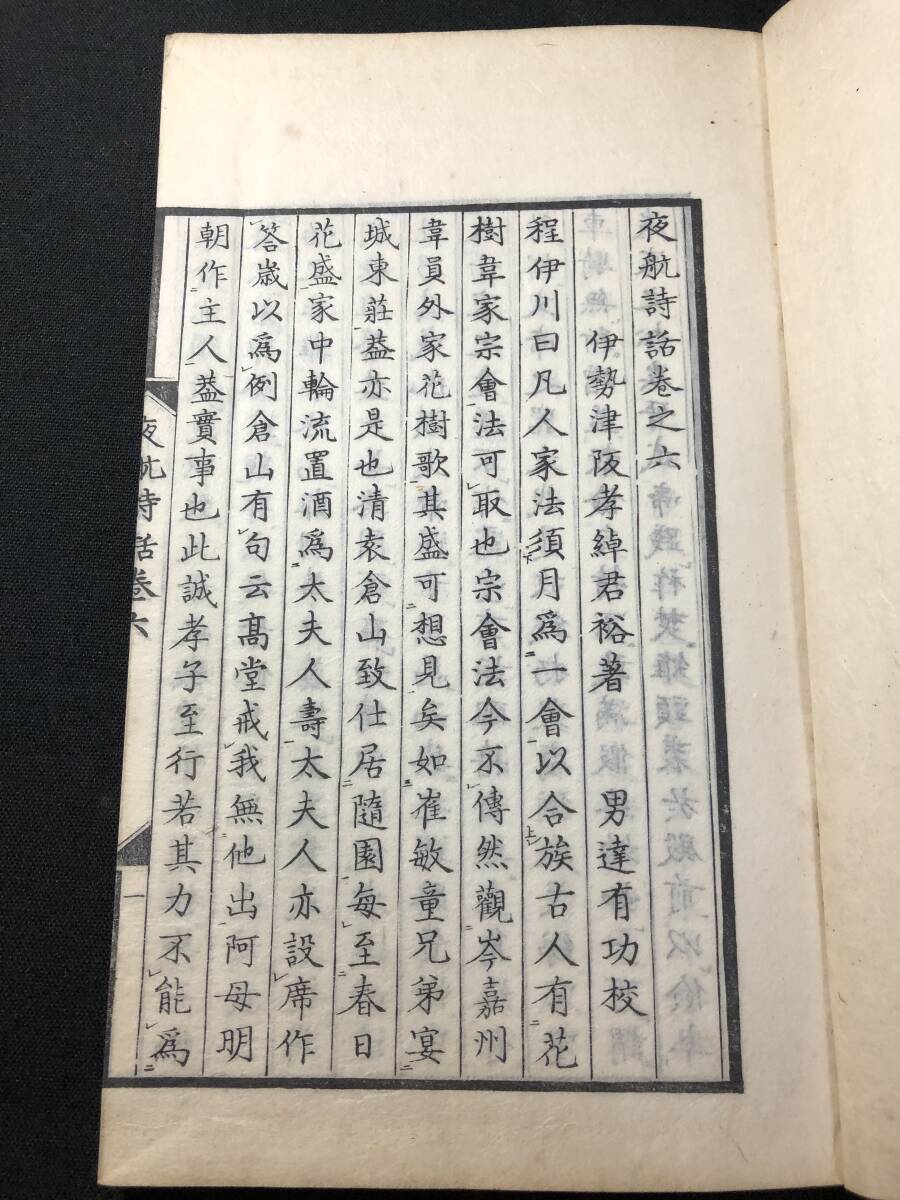 夜航詩話卷之六
伊勢津阪孝綽君裕著　男達有功校
程伊川曰凡人家法須月爲一會以合族古人有花
樹韋家宗會法可取也宗會法今不傳然觀岑嘉州
韋員外家花樹歌其盛可想見矣如崔敏童兄弟宴
城東莊葢亦是也清袁倉山致仕居隨園每至春日
花盛家中輪流置酒爲太夫人壽太夫人亦設席作
答歲以爲例倉山有句云高堂戒我無他出阿母明
朝作主人葢實事也此誠孝子至行若其力不能爲
夜航詩話卷六
一